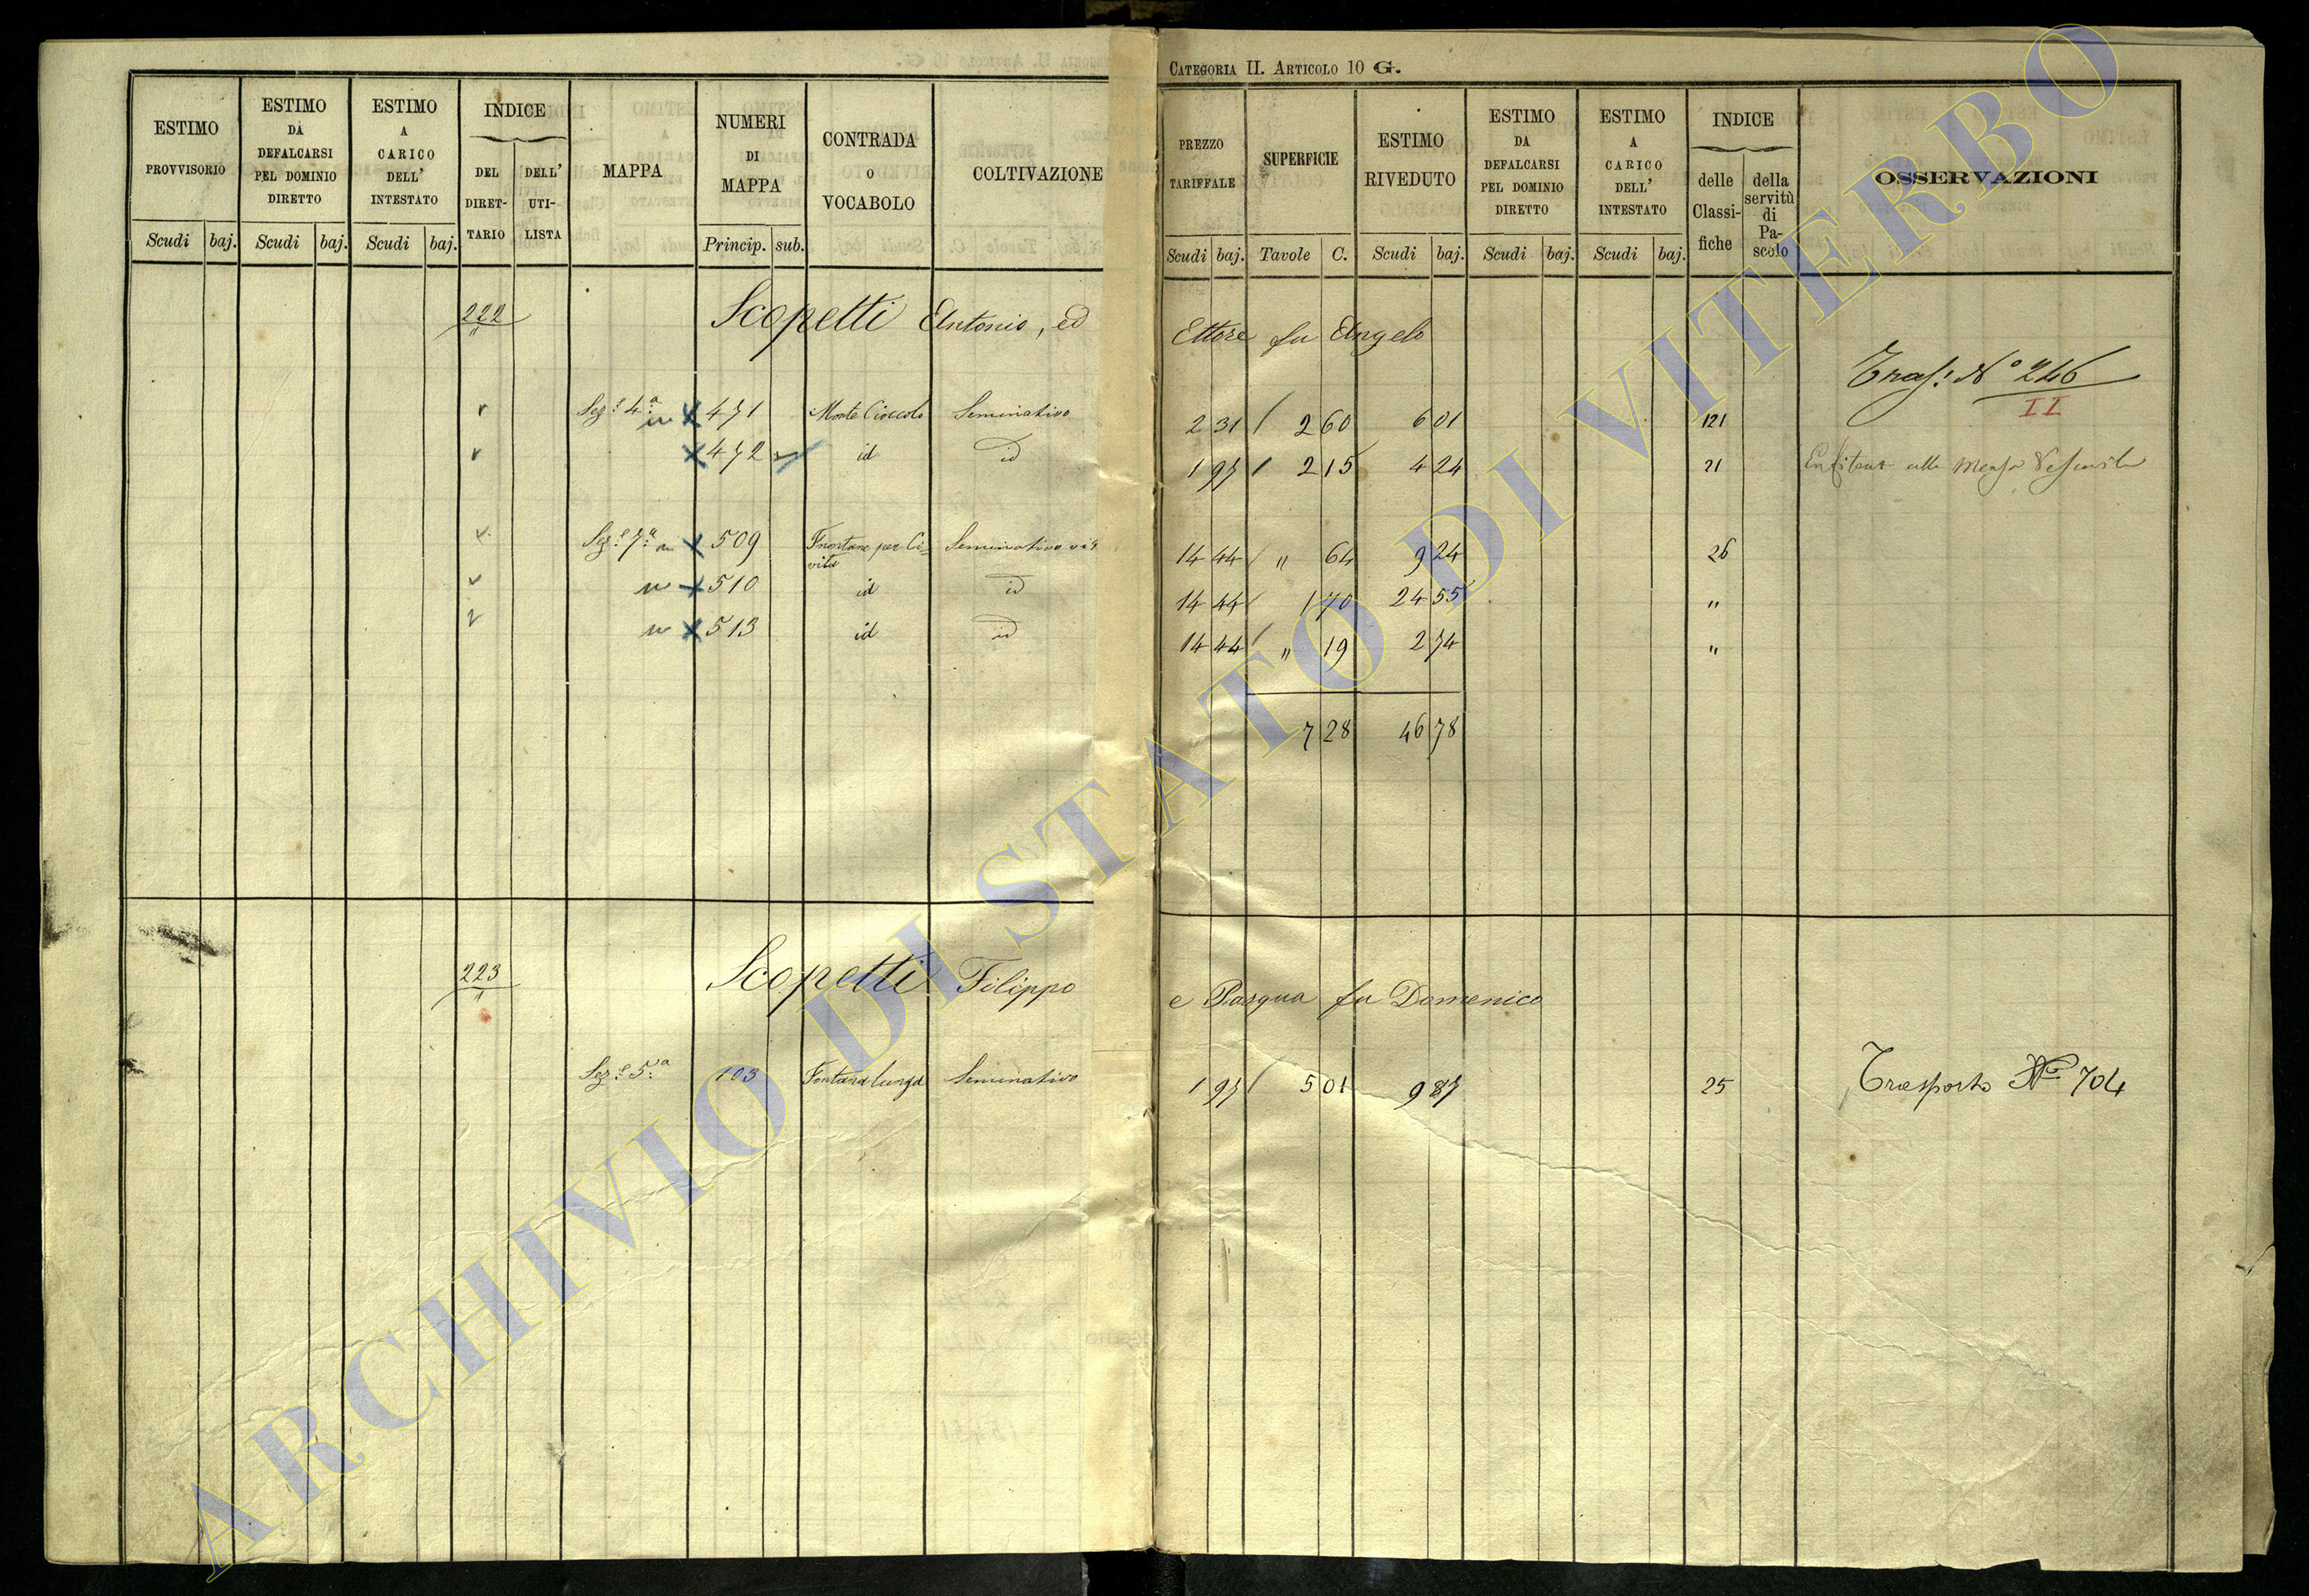 CATEGORIA II. ARTICOLO 10 G.
ESTIMO PROVVISORIO
Scudi baj.
ESTIMO DA DEFALCARSI PEL DOMINIO DIRETTO
Scudi baj.
ESTIMO A CARICO DELL' INTESTATO
Scudi baj.
INDICE
DEL DIRET-
TARIO
DELL' UTI-
LISTA
MAPPA
NUMERI DI MAPPA
Princip. sub.
CONTRADA O VOCABOLO
COLTIVAZIONE
PREZZO TARIFFALE
Scudi baj.
SUPERFICIE
Tavole C.
ESTIMO RIVEDUTO
Scudi baj.
ESTIMO DA DEFALCARSI PEL DOMINIO DIRETTO
Scudi baj.
ESTIMO A CARICO DELL' INTESTATO
Scudi baj.
INDICE
delle Classi-
fiche
della servitù di Pa-
scolo
OSSERVAZIONI
222 Scopetti Antonio, ed Ettore fu Angelo
" Trasp: N° 246
II
Sez.e 4.a 471 Monte Cioccolo Seminativo 2 31 2 60 6 01 121
472 id id 1 97 2 15 4 24 21 alla Mensa Vescovile
Sez.e 7.a 509 per Ci-
vita Seminativo vit 14 44 " 64 9 24 26
510 id id 14 44 1 70 24 55 "
513 id id 14 44 " 19 2 74 "
7 28 46 78
223 Scopetti Filippo e Pasqua fu Domenico
"
Sez.e 5.a 103 Fontana lunga Seminativo 1 97 5 01 9 87 25 Trasporto N° 704
ARCHIVIO DI STATO DI VITERBO